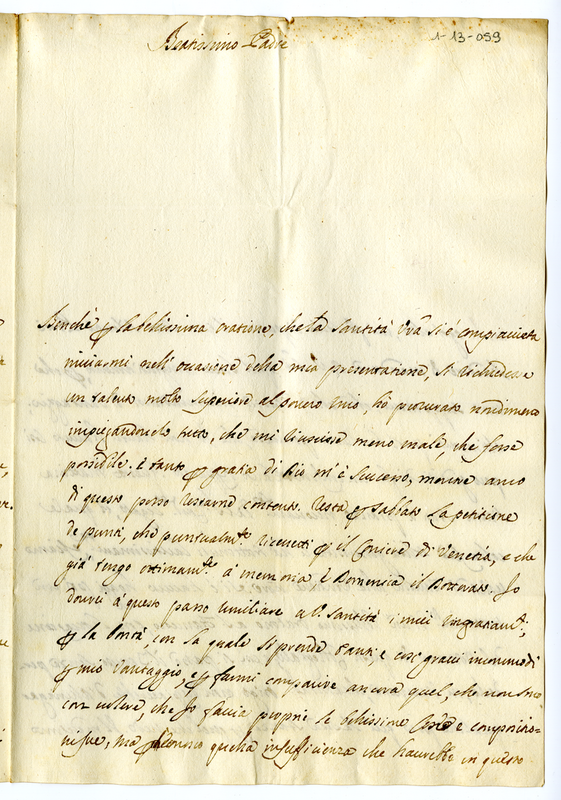 Beatissimo Padre
1-13-059
Benche p la bellissima oratione, che la Santità Vrã si è compiaciuta
inviarmi nell' occasione della mia presentatione, si richiedesse
un talento molto superiore al povero mio, hò procurato nondimeno
impiegandovelo tutto, che mi riuscisse meno male, che fosse
possibile, e tanto p gratia di Dio m'è successo, mentre anco
di questo posso restarne contento. Resta p Sabbato la petitione
de punti, che puntualmte ricevetti p il Coriere di Venetia, e che
già tengo ottimamte à memoria, e Domenica il Dottorato. Io
dovrei à questo passo umiliare a V. Santità i miei ringratiamti,
p la bontà, con la quale si prende tanti e cosi gravi incommodi
p mio vantaggio, e p farmi comparire ancora quel, che non sono
con volere, che Io faccia proprie le bellissime e compositio-
ni sue, ma quella insufficienza che haverebbe in questo